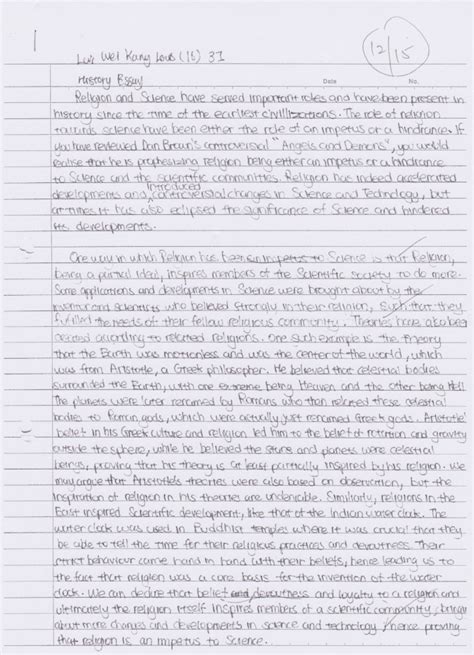 1
Wei Kang (15) 3I
12/15
History Essay
Date No.
Religion and Science have served important roles and have been present in
history since the time of the earliest civillizations. The role of religion
towards science have been either the role of an impetus or a hindrance. If
you have reviewed Dan Brown's controversial "Angels and Demons", you would
realise that he is prophesizing religion being either an impetus or a hindrance
to Science and the scientific communities. Religion has indeed accelerated
developments and introduced controversial changes in Science and Technology, but
at times it has also eclipsed the significance of Science and hindered
its developments.
One way in which Religion has been an impetus to Science is that Religion,
being a partial idea, inspires members of the Scientific society to do more.
Some applications and developments in Science were brought about by the
inventor and scientists who believed strongly in their religion, such that they
fulfilled the needs of their fellow religious community. Theories have also been
created according to related religions. One such example is the theory
that the Earth was motionless and was the center of the world, which
was from Aristotle, a Greek philosopher. He believed that celestial bodies
surrounded the Earth, with one extreme being Heaven and the other being Hell.
The planets were later renamed by Romans who then related these celestial
bodies to Roman gods, which were actually just renamed Greek gods. Aristotle's
belief in his Greek culture and religion led him to the belief of rotation and gravity
outside the sphere, while he believed the stars and planets were celestial
beings, proving that his theory is at least partially inspired by his religion. We
may argue that Aristotle's theories were also based on observation, but the
inspiration of religion in his theories are undeniable. Similarly, religions in the
East inspired Scientific development, like that of the Indian water clock. The
water clock was used in Buddhist temples where it was crucial that they
be able to tell the time for their religious practices and devoutness. Their
strict behaviour came hand in hand with their beliefs, hence leading us to
the fact that religion was a core basis for the invention of the water
clock. We can declare that belief and devoutness and loyalty to a religion and
ultimately the religion itself inspires members of a scientific community, brings
about more changes and developments in science and technology, hence proving
that religion is an impetus to Science.